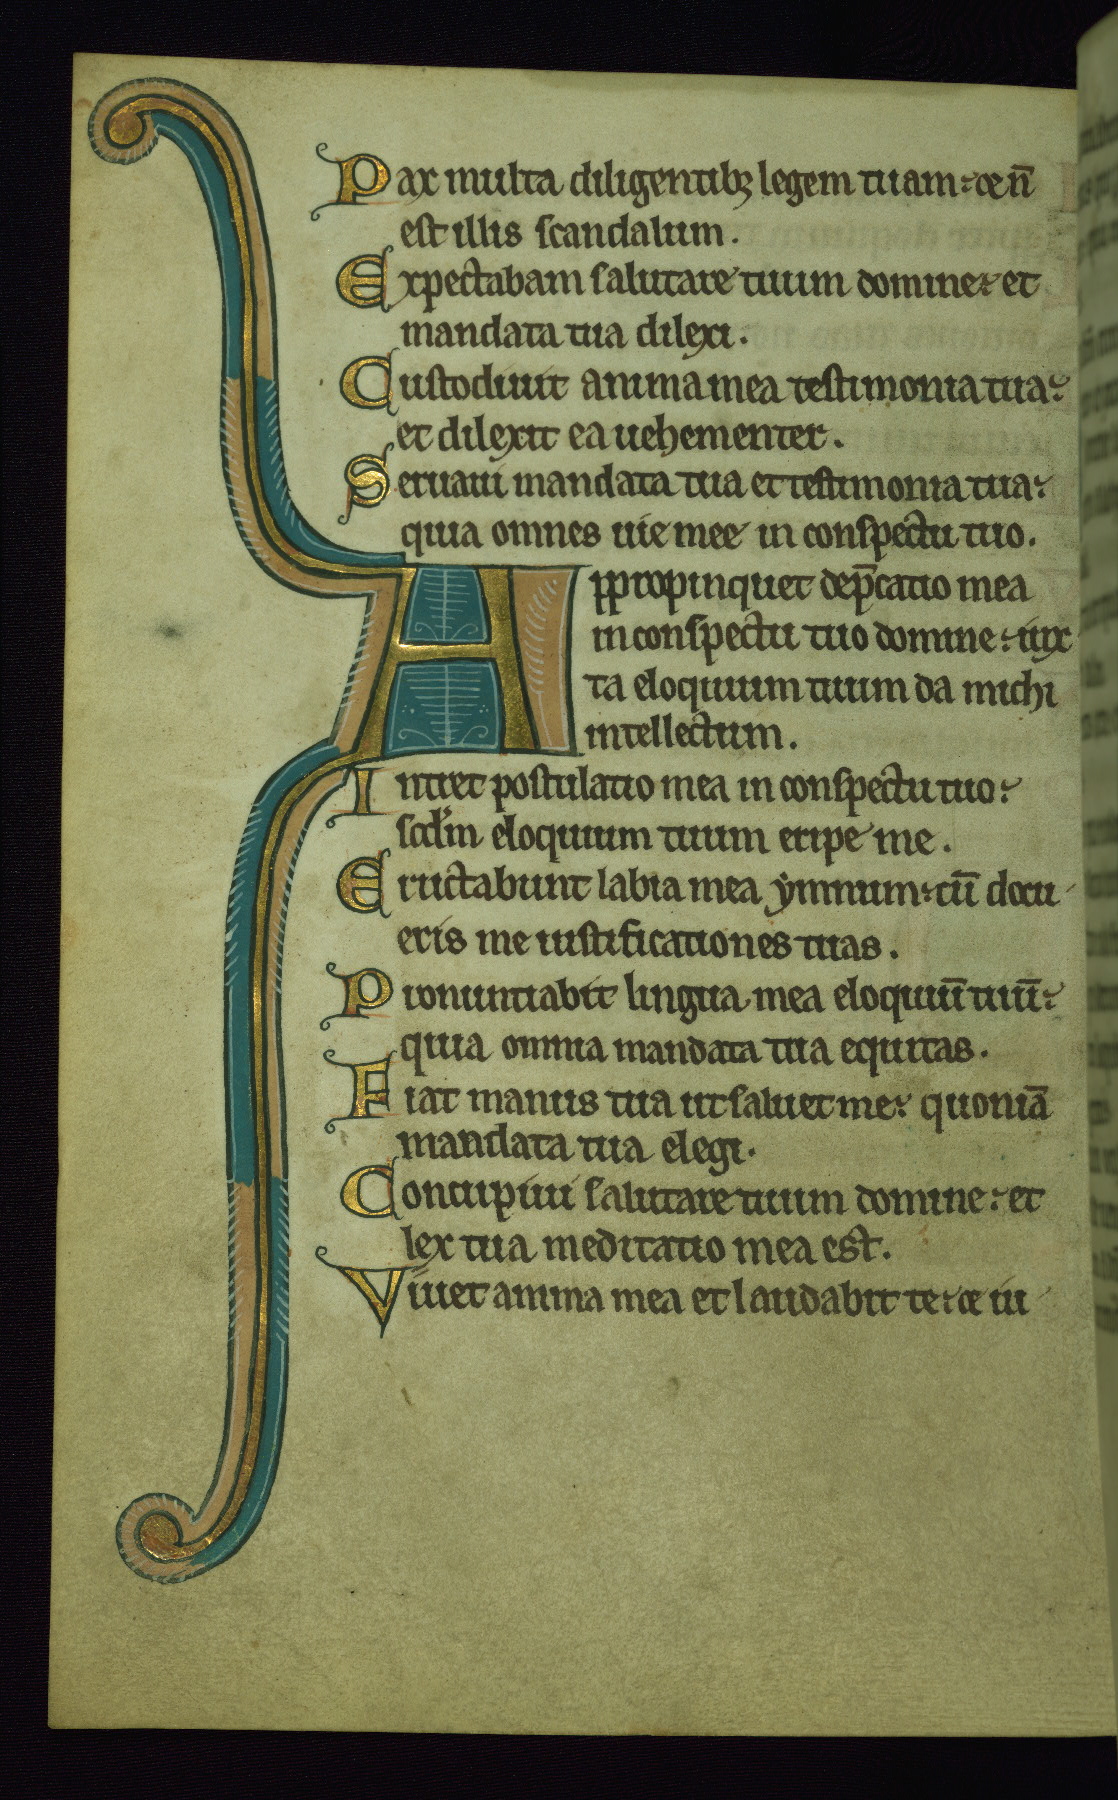 Pax multa diligentibꝫ legem tuam: & n̄
est illis scandalum.
Expectabam salutare tuum domine: et
mandata tua dilexi.
Custodiuit anima mea testimonia tua:
et dilexit ea uehementer.
Seruaui mandata tua et testimonia tua:
quia omnes uie mee in conspectu tuo.
Appropinquet dep̄catio mea
in conspectu tuo domine: iux
ta eloquium tuum da michi
intellectum.
Intret postulatio mea in conspectu tuo:
scdm̄ eloquium tuum eripe me.
Eructabunt labia mea ẏmnum: cū docu
eris me iustificationes tuas.
Pronuntiabit lingua mea eloquiū tuū:
quia omnia mandata tua equitas.
Fiat manus tua ut saluet me: quoniā
mandata tua elegi.
Concupiui salutare tuum domine: et
lex tua meditatio mea est.
Viuet anima mea et laudabit te: & iu